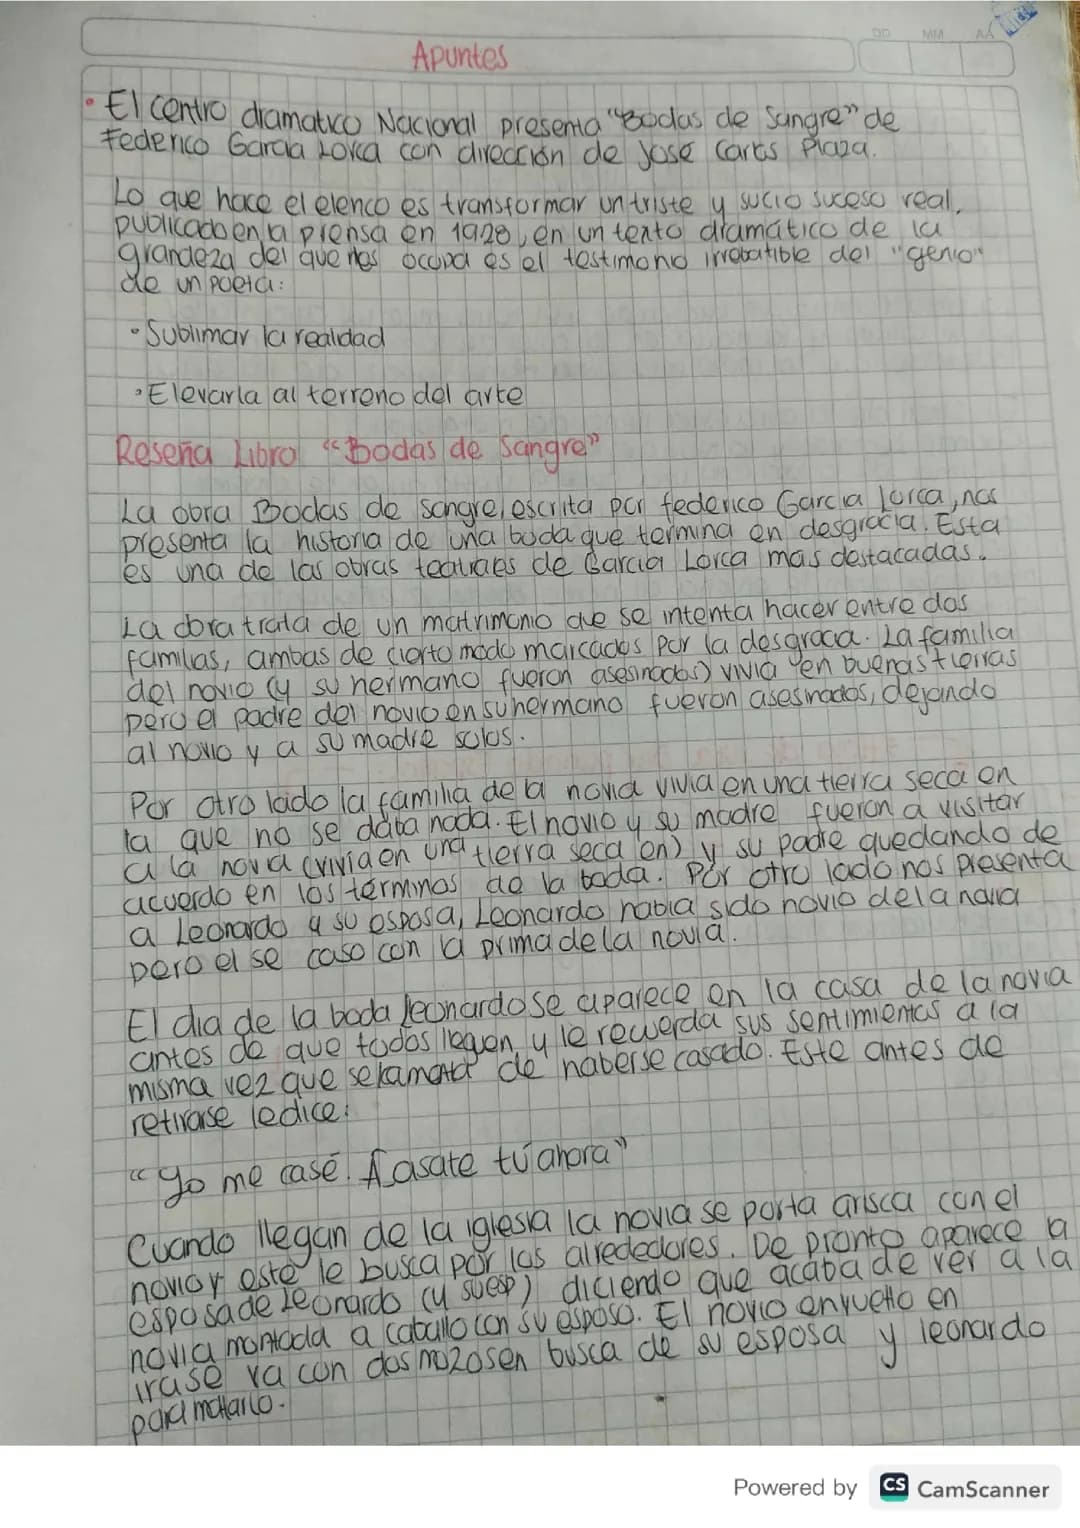 DD MM AA
Apuntes
• El centro dramatico Nacional presenta "Bodas de Sangre" de
Federico Garcia Lorca con dirección de José Carlos Plaza.
Lo que hace el elenco es transformar un triste y sucio suceso real,
publicado en la prensa en 1928, en un texto dramático de la
grandeza del que nos ocupa es el testimonio irrebatible del "genio"
de un poeta:
• Sublimar la realidad
• Elevarla al terreno del arte
Reseña Libro "Bodas de Sangre"
La obra Bodas de sangre, escrita por federico Garcia Lorca, nos
presenta la historia de una boda que termina en desgracia. Esta
es una de las obras teatrales de Garcia Lorca mas destacadas.
La obra trata de un matrimonio que se intenta hacer entre dos
familias, ambas de cierto modo marcadas por la desgracia. La familia
del novio (y su hermano fueron asesinados) vivia en buenas tierras
pero el padre del novio en su hermano fueron asesinados, dejando
al novio y a su madre solos.
Por otro lado la familia de la novia vivia en una tierra seca en
la que no se daba nada. El novio y su madre fueron a visitar
a la novia (vivia en una tierra seca en) y su padre quedando de
acuerdo en los términos de la boda. Por otro lado nos presenta
a Leonardo y su esposa, Leonardo habia sido novio de la novia
pero el se caso con la prima de la novia.
El dia de la boda Leonardo se aparece en la casa de la novia
antes de que todos llegen y le recuerda sus sentimientos a la
misma vez que se lamenta de haberse casado. Este antes de
retirarse le dice:
"Yo me casé. Casate tú ahora"
Cuando llegan de la iglesia la novia se porta arisca con el
novio y este le busca por los alrededores. De pronto aparece la
esposa de Leonardo (y su esp) diciendo que acaba de ver a la
novia montada a caballo con su esposo. El novio envuelto en
ira se va con dos mozos en busca de su esposa y leonardo
para matarlo.
Powered by CS CamScanner